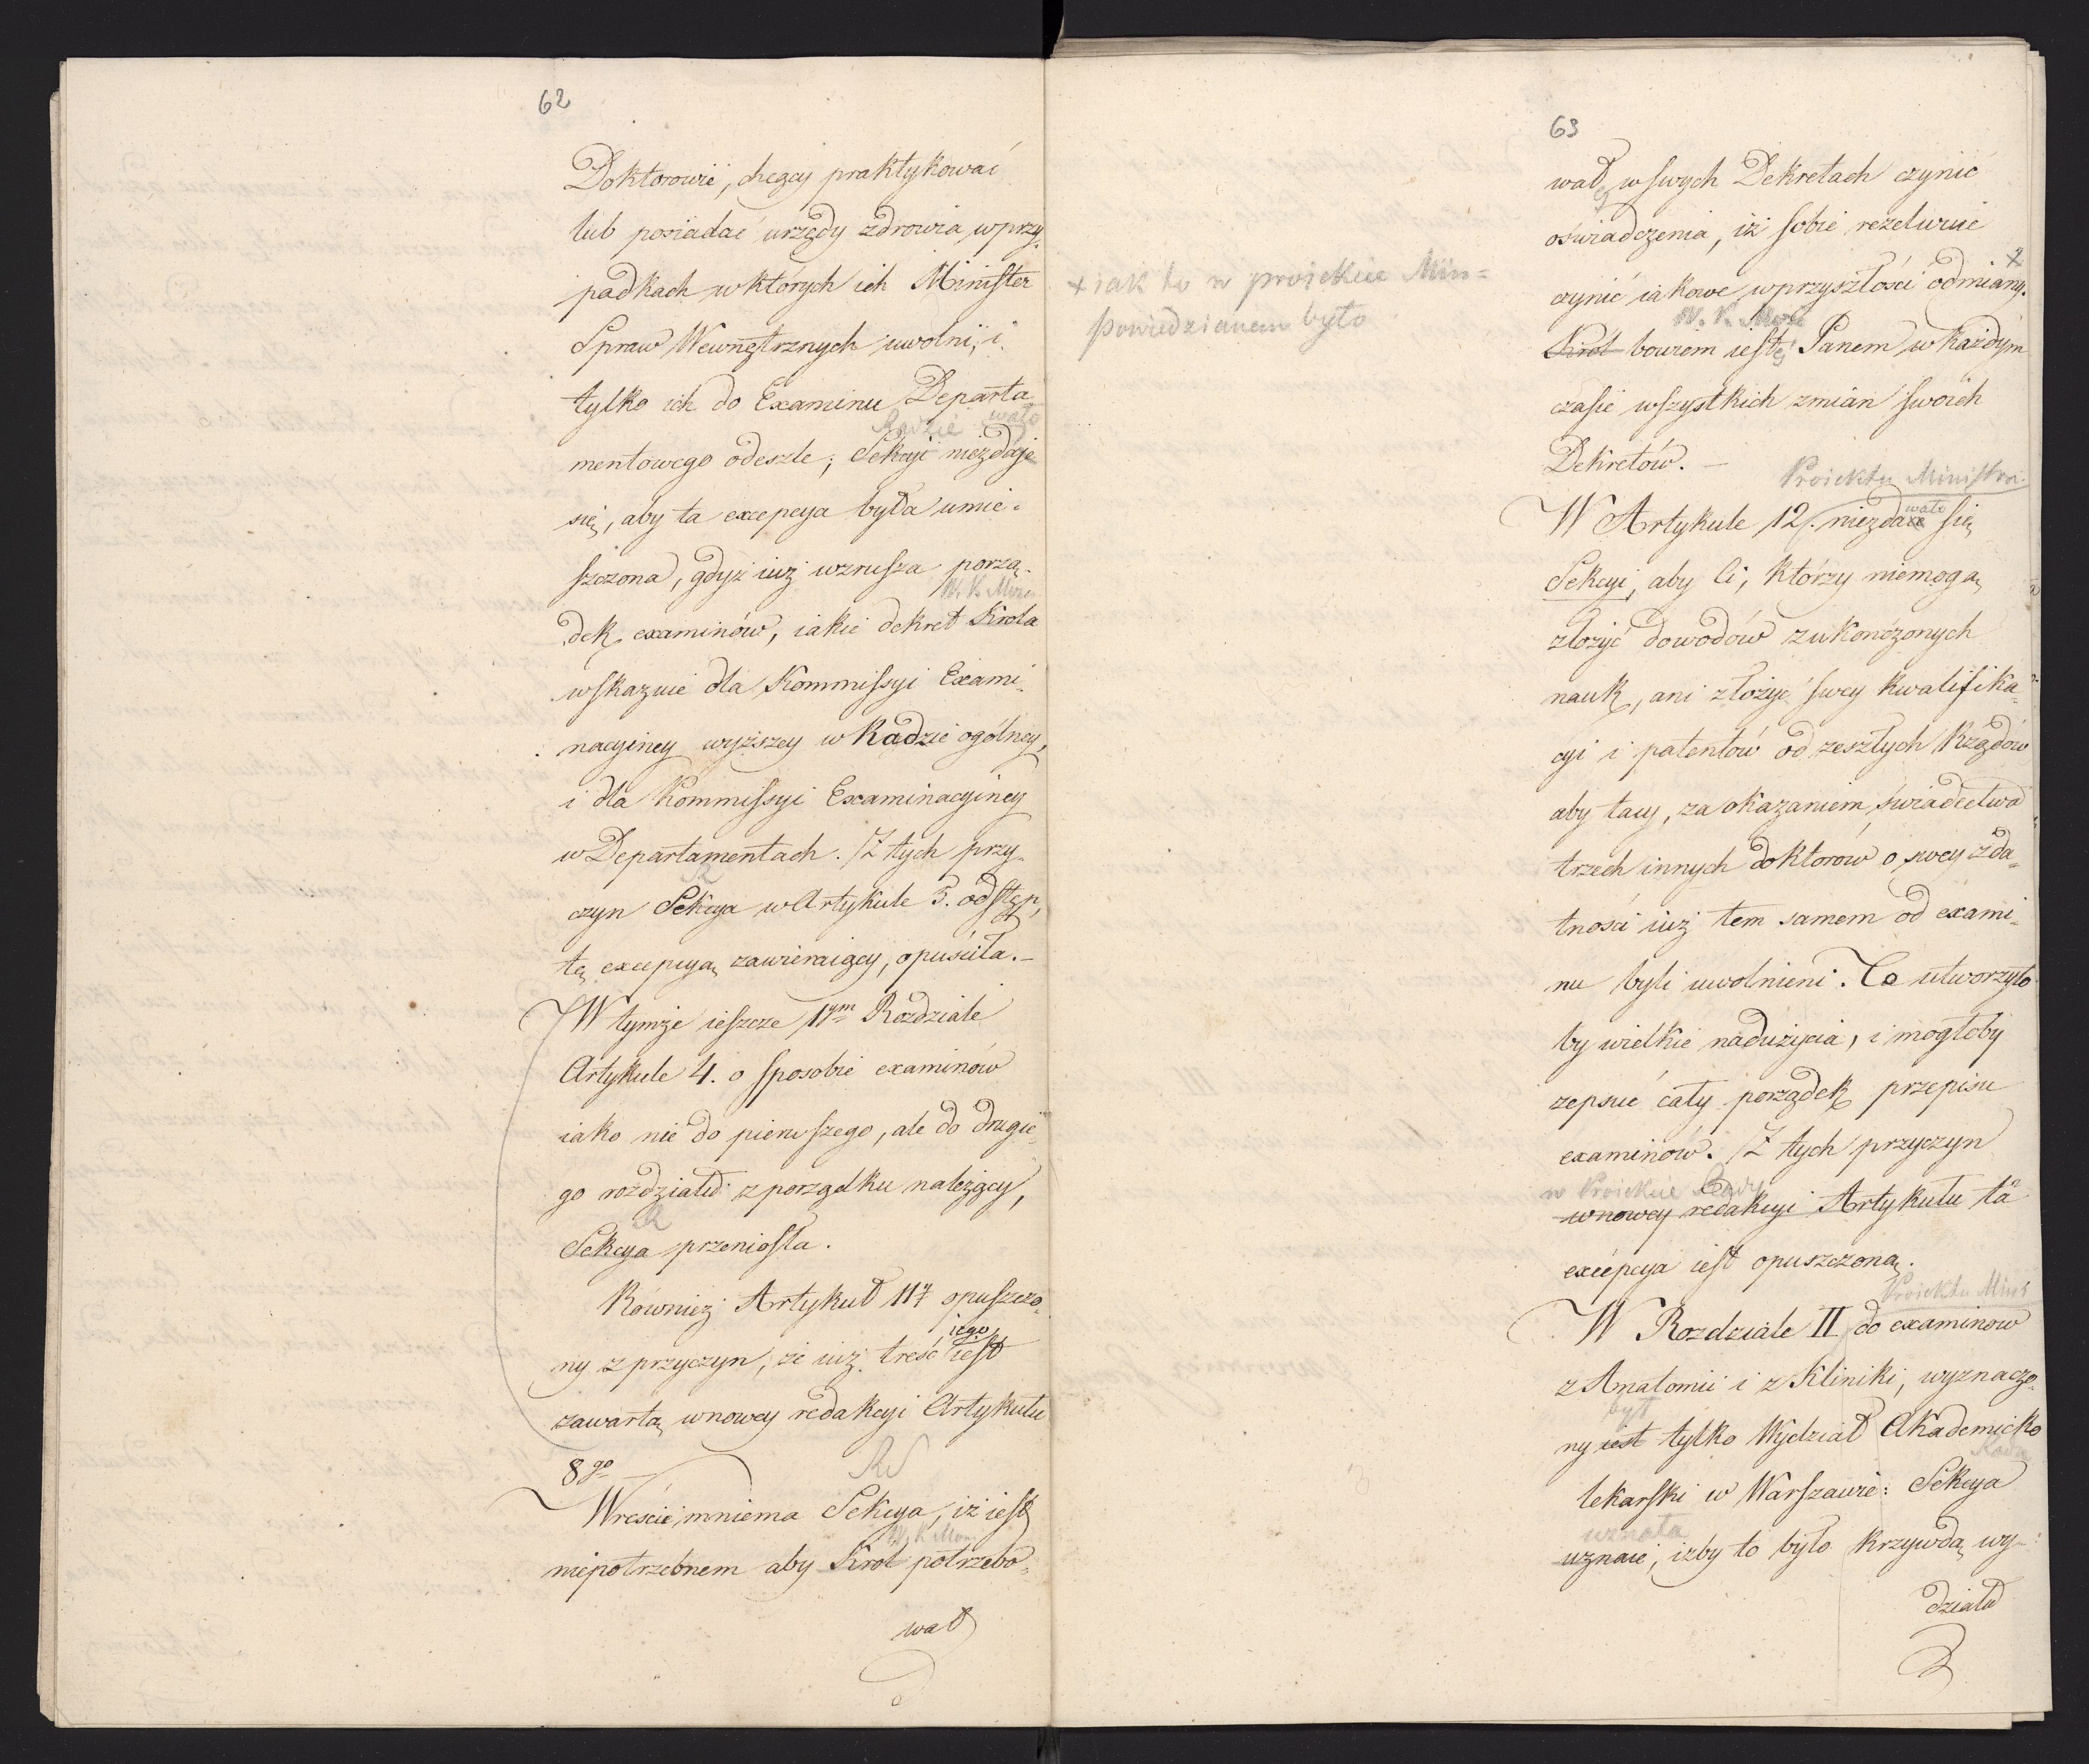 62
Doktorowie, chcący praktykować
lub posiadać urzędy zdrowia, w przy-
padkach w których ich Minister
Spraw Wewnętrznych uwolni, i
tylko ich do Examinu Departa
Radzie wało
mentowego odeszle; Sekcyi niezdaje
się, aby ta excepcya była umie-
szczona, gdyż iuż wzrusza porzą-
N. K. Mira
dek examinów, iakie dekret Krola
wskazuie dla Kommissyi Exami-
nacyiney wyższey w Radzie ogólney,
i dla Kommissyi Examinacyiney
w Departamentach. Z tych przy-
R
czyn Sekcya w Artykule 3. odstęp,
tę excepcyą zawieraiący, opuściła.-
W tymże ieszcze 1ym Rozdziale
Artykule 4. o sposobie examinów
iako nie do pierwszego, ale do drugie-
go rozdziału z porządku należący,
R
Sekcya przeniosła.
Również Artykuł 117 opuszczo-
iego
ny z przyczyn, że iuż treść iest
zawartą w nowey redakcyi Artykułu
8go
Rd
Wreście mniema Sekcya, iż iest
N. K. Mon.
niepotrzebnem aby Krol potrzebo-
wał
63
wał w swych Dekretach czynić
oświadczenia, iż sobie rezerwuie
x
czynić iakowe w przyszłości odmiany.
x iak to w proiekcie Min=
powiedzianem było
N. K. Mość
Król bowiem iest Panem w każdym
czasie wszystkich zmian swoich
Dekretów. –
Proiektu Ministra.
wało
W Artykule 12. niezdaie się
Sekcyi, aby Ci, którzy niemogą
złożyć dowodów z ukończonych
nauk, ani złożyć swey kwalifika-
cyi i patentów od zeszłych Rządów
aby tacy, za okazaniem świadectwa
trzech innych doktorów o swey zda-
tności iuż tem samem od exami-
nu byli uwolnieni. Co utworzyło
by wielkie nadużycia, i mogłoby
zepsuć cały porządek przepisu
examinów. Z tych przyczyn
w Proiekcie Rady
w nowey redakcyi Artykułu ta
excepcya iest opuszczoną.
Proiektu Mins
W Rozdziale II do examinow
z Anatomii i z Kliniki, wyznaczo-
był
ny iest tylko Wydział Akademicko
Rada
lekarski w Warszawie: Sekcya
uznała
uznaie, iżby to było krzywdą wy-
działu